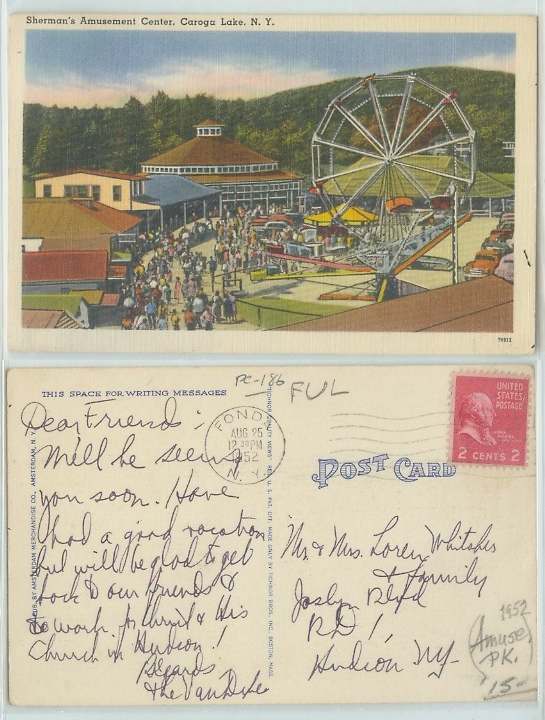 Sherman's Amusement Center, Caroga Lake, N. Y.
THIS SPACE FOR WRITING MESSAGES
PC-186
FUL
FONDA
AUG 25
12 30 PM
1952
N. Y.
UNITED
STATES
POSTAGE
2 CENTS 2
POST CARD
Dear Friends:
We'll be seeing
you soon. Have
had a good vacation
but will be glad to get
back to our friends &
to work for Christ & His
Church in Hudson!
Regards,
the Van Dykes
PUB. BY AMSTERDAM MERCHANDISE CO., AMSTERDAM, N. Y.
TICHNOR BROS., INC. BOSTON, MASS.
Mr. & Mrs. Loren Whitaker
& family
Joslyn Blvd
RD 1,
Hudson NY
1952
Amuse.
PK.
15-